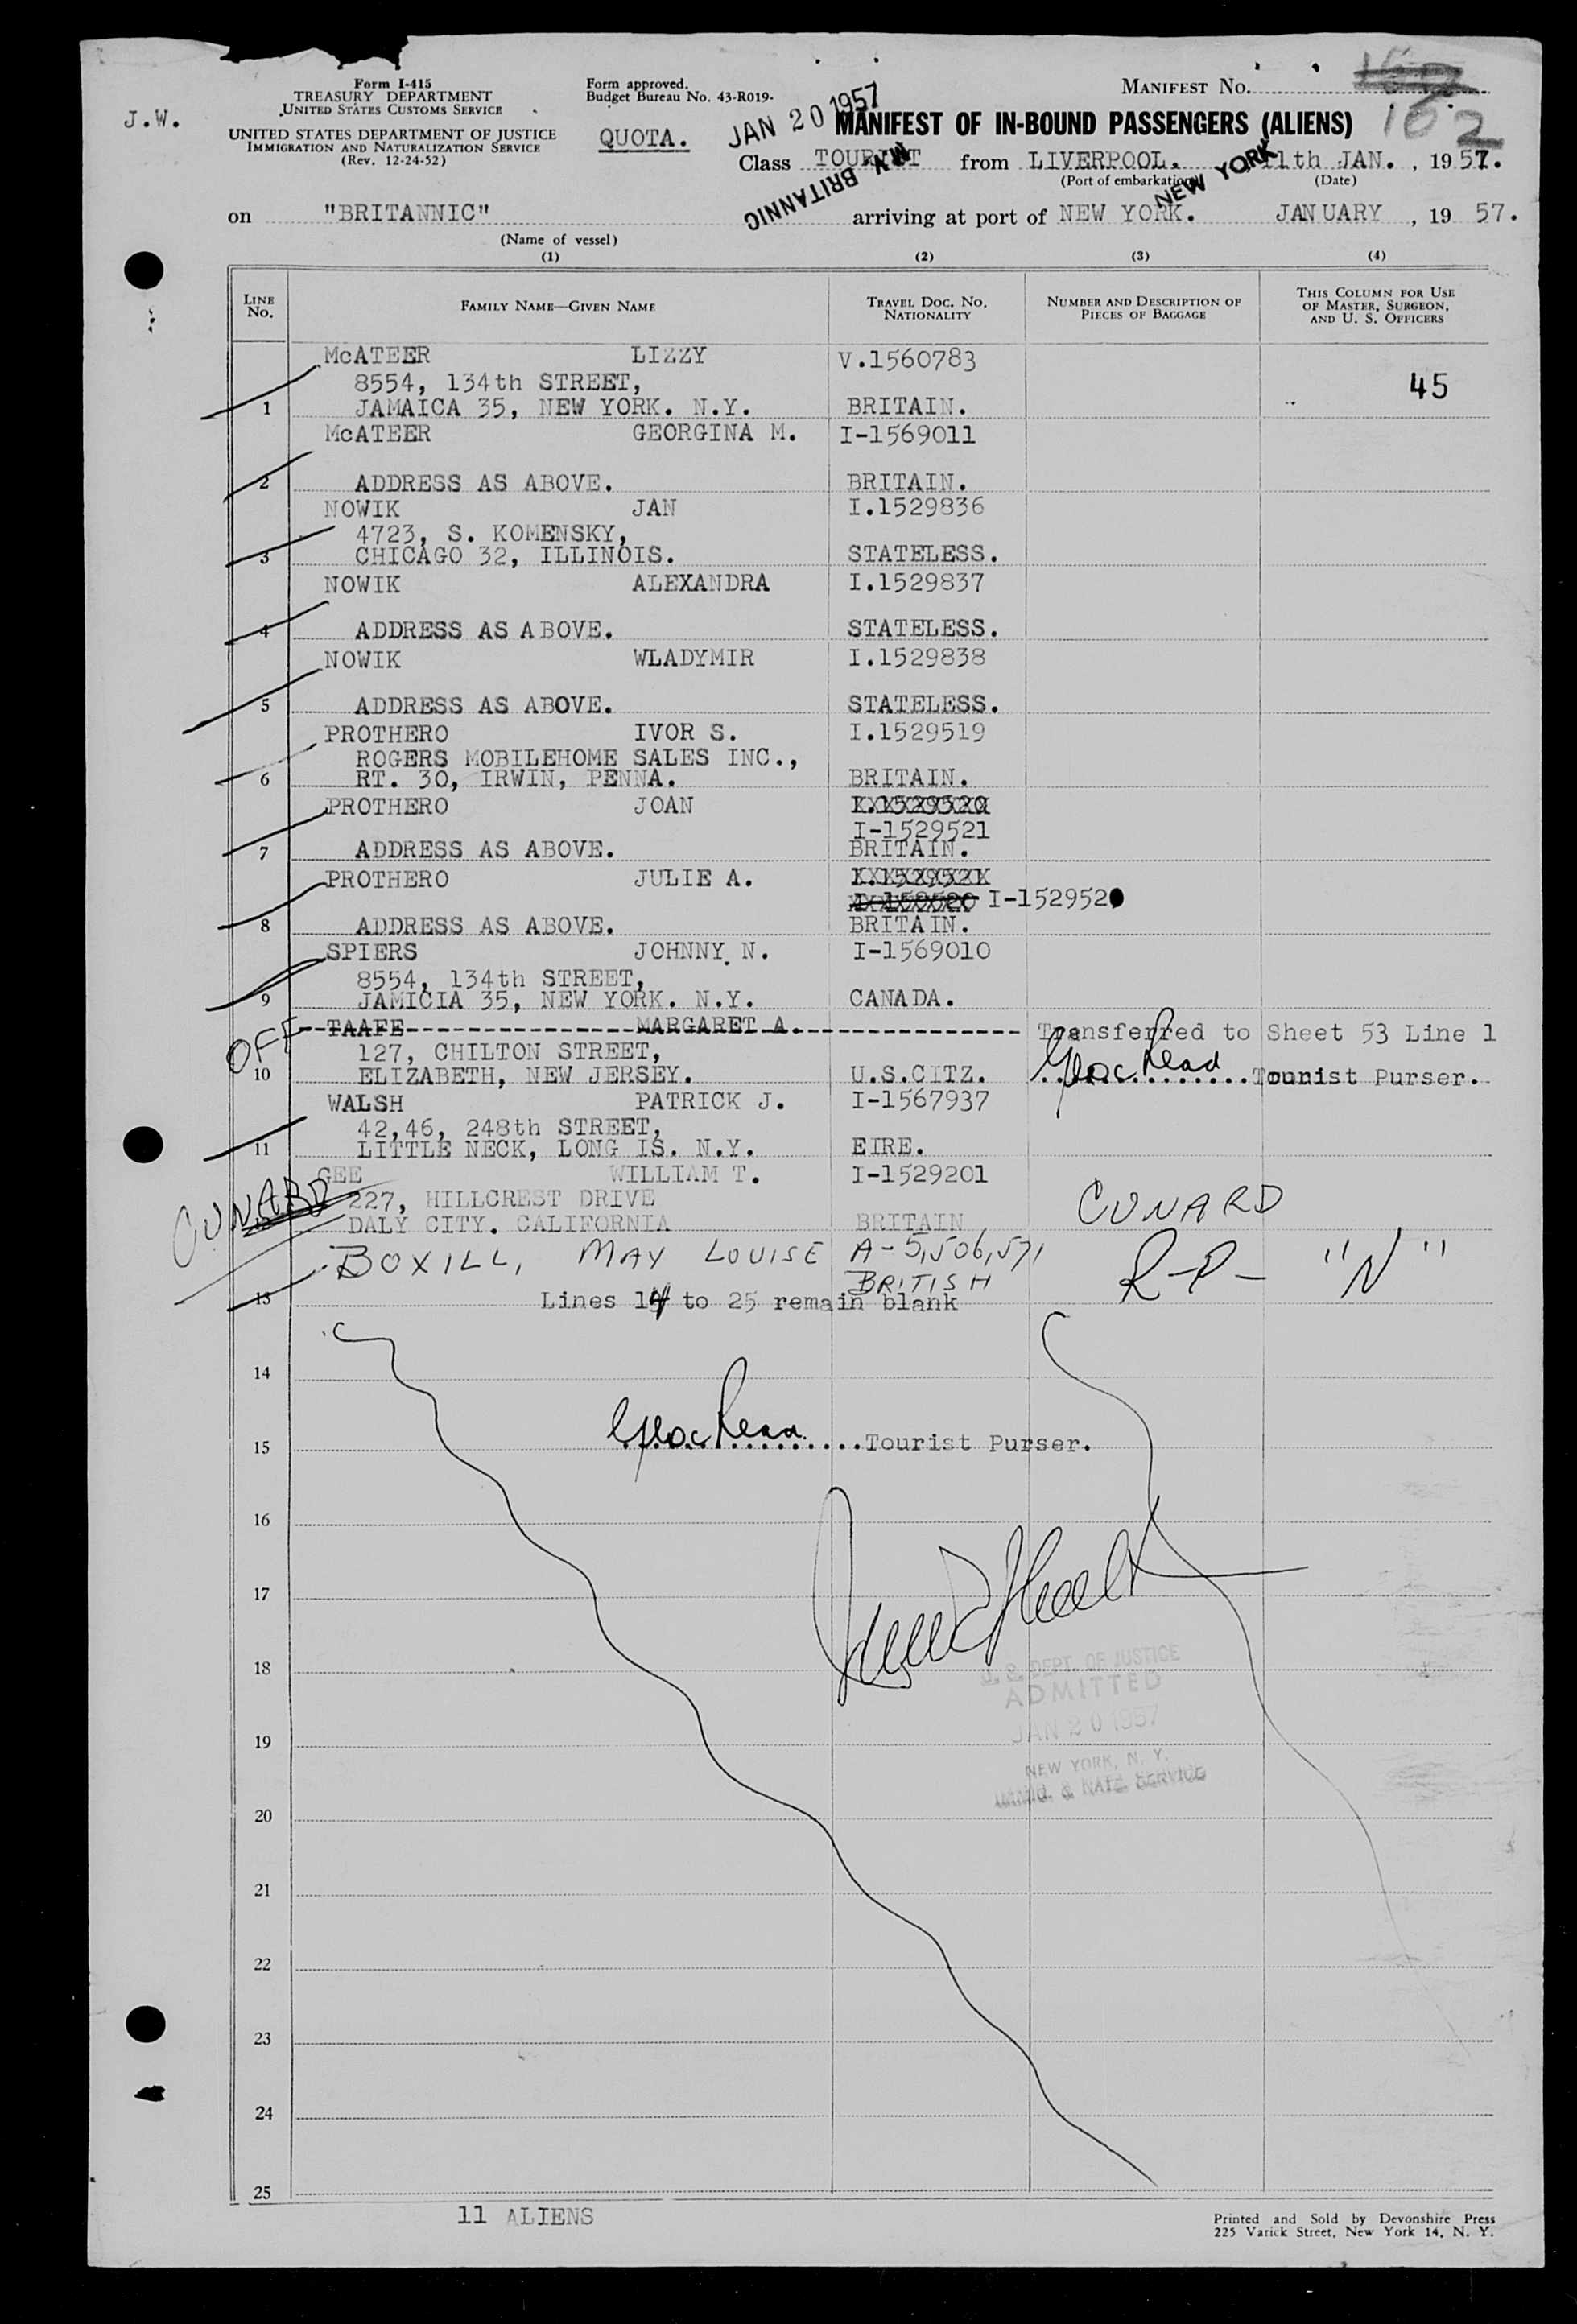 Form I-415
TREASURY DEPARTMENT
UNITED STATES CUSTOMS SERVICE
J.W.
UNITED STATES DEPARTMENT OF JUSTICE
IMMIGRATION AND NATURALIZATION SERVICE
(Rev. 12-24-52)
Form approved.
Budget Bureau No. 43-R019-
QUOTA.
JAN 20 1957
BRITANNIC
NEW YORK
MANIFEST NO.
102
MANIFEST OF IN-BOUND PASSENGERS (ALIENS)
Class TOURIST from LIVERPOOL. 11th JAN. , 1957.
(Port of embarkation) (Date)
on "BRITANNIC" arriving at port of NEW YORK. JANUARY , 19 57.
(Name of vessel)
(1) (2) (3) (4)
LINE NO. FAMILY NAME—GIVEN NAME TRAVEL DOC. NO. NATIONALITY NUMBER AND DESCRIPTION OF PIECES OF BAGGAGE THIS COLUMN FOR USE OF MASTER, SURGEON, AND U. S. OFFICERS
McATEER LIZZY V.1560783
8554, 134th STREET, 45
1 JAMAICA 35, NEW YORK. N.Y. BRITAIN.
McATEER GEORGINA M. I-1569011
2 ADDRESS AS ABOVE. BRITAIN.
NOWIK JAN I.1529836
4723, S. KOMENSKY,
3 CHICAGO 32, ILLINOIS. STATELESS.
NOWIK ALEXANDRA I.1529837
4 ADDRESS AS ABOVE. STATELESS.
NOWIK WLADYMIR I.1529838
5 ADDRESS AS ABOVE. STATELESS.
PROTHERO IVOR S. I.1529519
ROGERS MOBILEHOME SALES INC.,
6 RT. 30, IRWIN, PENNA. BRITAIN.
PROTHERO JOAN I.1529520
I-1529521
7 ADDRESS AS ABOVE. BRITAIN.
PROTHERO JULIE A. I.1529521
I-1529520
8 ADDRESS AS ABOVE. BRITAIN.
SPIERS JOHNNY N. I-1569010
8554, 134th STREET,
9 JAMICIA 35, NEW YORK. N.Y. CANADA.
OFF TAAFE MARGARET A. Transferred to Sheet 53 Line 1
127, CHILTON STREET,
10 ELIZABETH, NEW JERSEY. U.S.CITZ. Tourist Purser.
WALSH PATRICK J. I-1567937
42,46, 248th STREET,
11 LITTLE NECK, LONG IS. N.Y. EIRE.
GEE WILLIAM T. I-1529201
CUNARD 227, HILLCREST DRIVE CUNARD
12 DALY CITY. CALIFORNIA BRITAIN
BOXILL, MAY LOUISE A-5,506,571 R-P- "N"
BRITISH
13 Lines 14 to 25 remain blank
14
15 Tourist Purser.
16
17
18
U. S. DEPT. OF JUSTICE
ADMITTED
JAN 20 1957
19
NEW YORK, N. Y.
IMMIG. & NATZ. SERVICE
20
21
22
23
24
25
11 ALIENS
Printed and Sold by Devonshire Press
225 Varick Street, New York 14, N. Y.